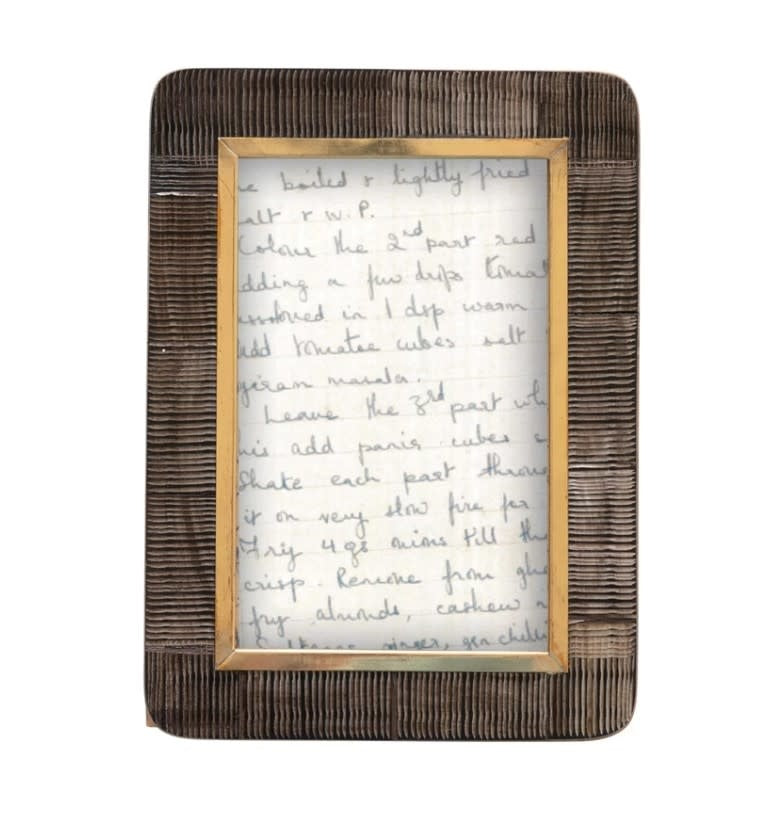 e boiled & lightly fried
alt & W.P.
Colour the 2nd part red
dding a few drops tomat
issolved in 1 dsp warm
Add tomatoe cubes salt
garam masala.
Leave the 3rd part whi
his add panir cubes &
Shake each part throu
it on very slow fire for
Fry 4 gs onions till the
crisp. Remove from ghe
fry almonds, cashew n
ginger, grn chilli